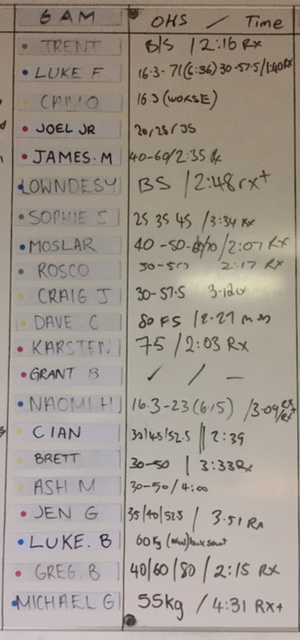 6 AM OHS / Time
TRENT B/S / 2:16 Rx
LUKE F 16.3-71(6:36) 30-57.5/1:40Rx
16.3 (WORSE)
JOEL JR 20/25/35
JAMES.M 40-60/2:35 Rx
LOWNDESY BS / 2:48 rx+
SOPHIE S 25 35 45 / 3:34 Rx
MOSLAR 40-50-60/70 / 2:07 Rx
ROSCO 30-50 2:17 Rx
CRAIG J 30-57.5
DAVE.C 80 FS / 2-27
KARSTEN 75 / 2:03 Rx
GRANT B ✓ / -
NAOMI H 16.3-23 (6:15) /3:09 rx/rx+
CIAN 30/45/52.5 || 2:39
BRETT 30-50 | 3:33Rx
ASH M 30-50/4:00
JEN G 35/40/52.5 / 3.51 Rx
LUKE.B 60kg
GREG.B 40/60/80 / 2:15 RX
MICHAEL G 55kg / 4:31 RX+